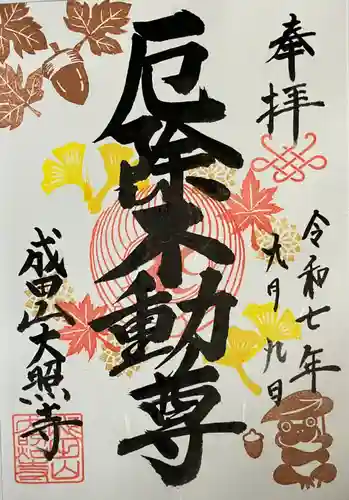 奉拝
令和七年
九月九日
厄除不動尊
成田山大照寺